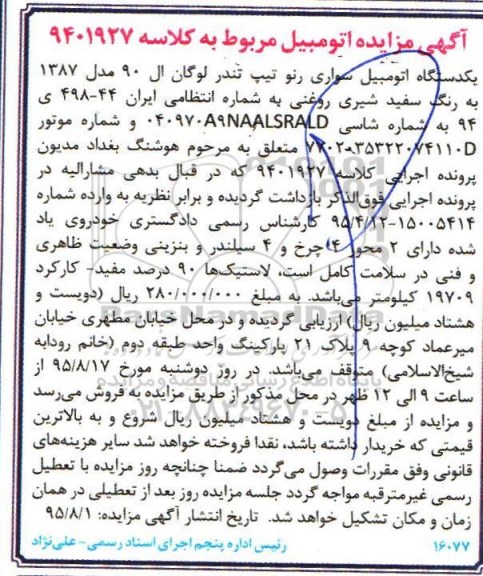 آگهی مزایده اتومبیل مربوط به کلاسه ۹۴۰۱۹۲۷
یکدستگاه اتومبیل سواری رنو تیپ تندر لوگان ال ۹۰ مدل ۱۳۸۷
به رنگ سفید شیری روغنی به شماره انتظامی ایران ۴۴-۴۹۸ ی
۹۴ به شماره شاسی ۰۴۰۹۷۰A۹NAALSRALD و شماره موتور
۷۷۰۲۰۳۵۳۲۲۰۷۴۱۱۰D متعلق به مرحوم هوشنگ بغداد مدیون
پرونده اجرایی کلاسه ۹۴۰۱۹۲۷ که در قبال بدهی مشارالیه در
پرونده اجرایی فوق‌الذکر بازداشت گردیده و برابر نظریه به وارده شماره
۹۵/۴/۱۲-۱۵۰۰۵۴۱۴ کارشناس رسمی دادگستری خودروی یاد
شده دارای ۲ محور ۴ چرخ و ۴ سیلندر و بنزینی وضعیت ظاهری
و فنی در سلامت کامل است، لاستیک‌ها ۹۰ درصد مفید- کارکرد
۱۹۷۰۹ کیلومتر می‌باشد. به مبلغ ۲۸۰/۰۰۰/۰۰۰ ریال (دویست و
هشتاد میلیون ریال) ارزیابی گردیده و در محل خیابان مطهری خیابان
میرعماد کوچه ۹ پلاک ۲۱ پارکینگ واحد طبقه دوم (خانم رودابه
شیخ‌الاسلامی) متوقف می‌باشد. در روز دوشنبه مورخ ۹۵/۸/۱۷ از
ساعت ۹ الی ۱۲ ظهر در محل مذکور از طریق مزایده به فروش می‌رسد
و مزایده از مبلغ دویست و هشتاد میلیون ریال شروع و به بالاترین
قیمتی که خریدار داشته باشد، نقدا فروخته خواهد شد سایر هزینه‌های
قانونی وفق مقررات وصول می‌گردد ضمنا چنانچه روز مزایده با تعطیل
رسمی غیرمترقبه مواجه گردد جلسه مزایده روز بعد از تعطیلی در همان
زمان و مکان تشکیل خواهد شد. تاریخ انتشار آگهی مزایده: ۹۵/۸/۱
رئیس اداره پنجم اجرای اسناد رسمی- علی‌نژاد
۱۶۰۷۷
ParsNamadData
پایگاه اطلاع رسانی مناقصه و مزایده